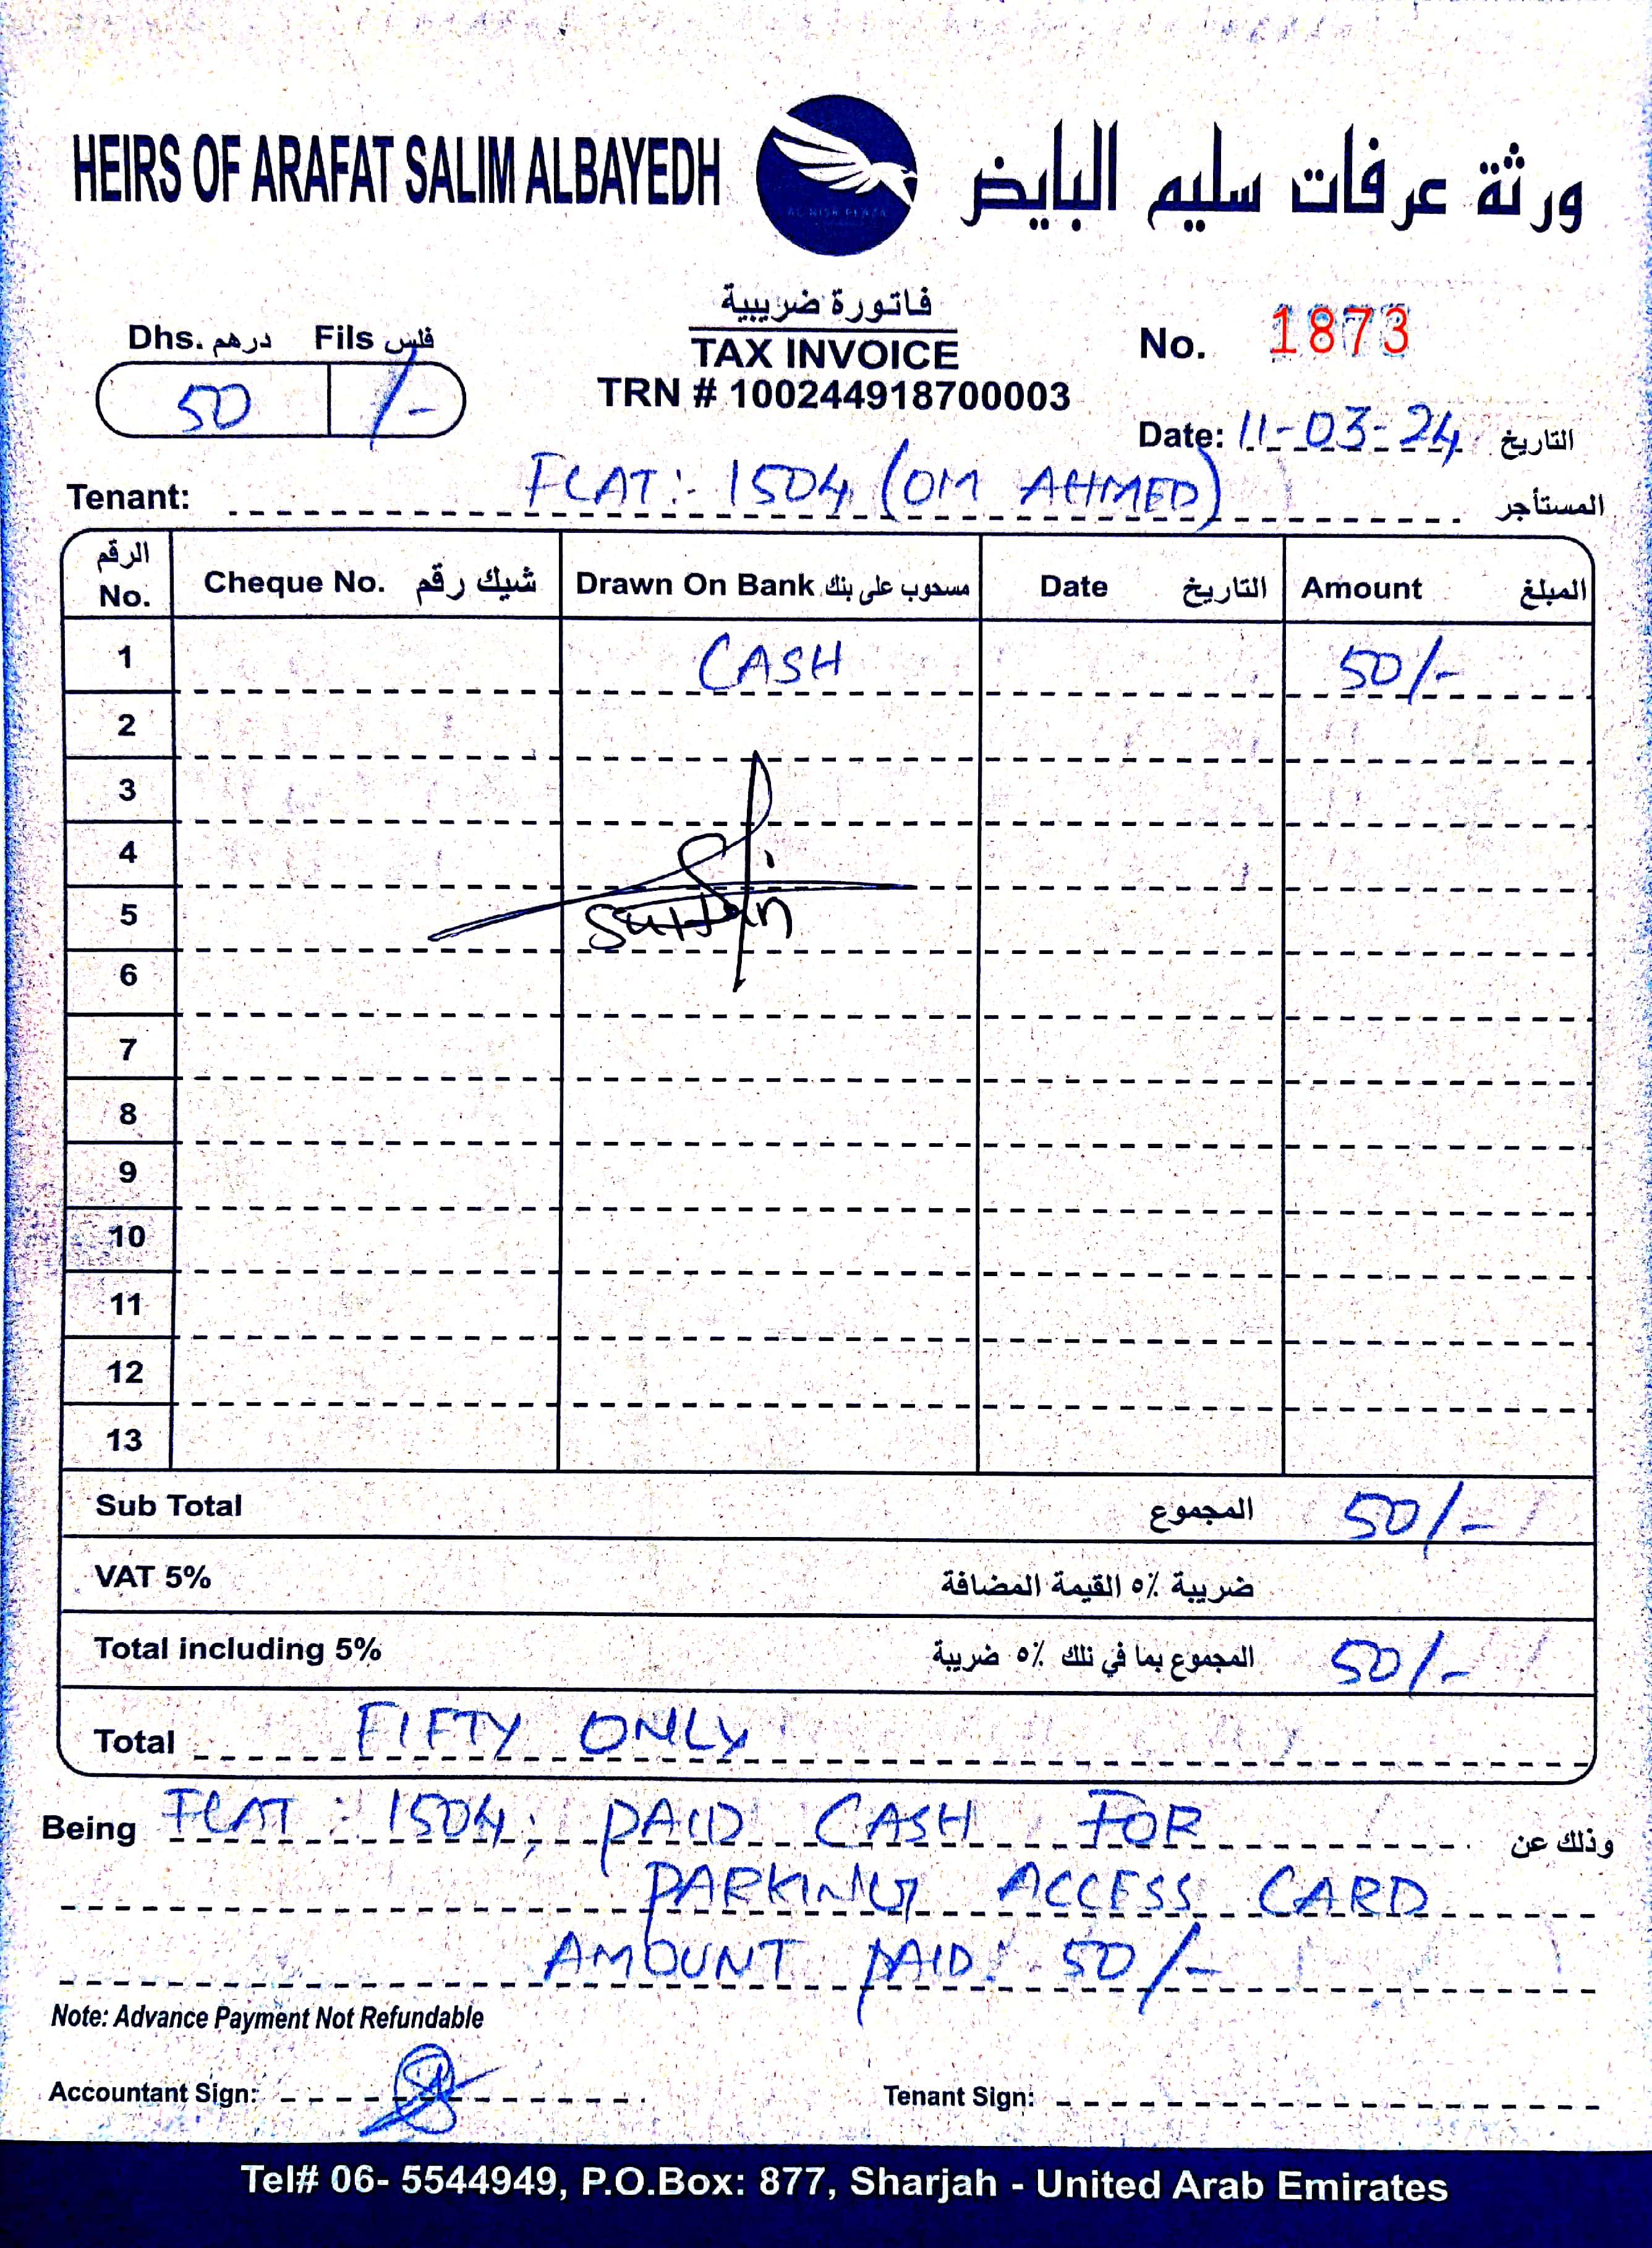 HEIRS OF ARAFAT SALIM ALBAYEDH
ورثة عرفات سليم البايض
AL NISR PLAZA
Dhs. درهم Fils فلس
50 /-
فاتورة ضريبية
TAX INVOICE
TRN # 100244918700003
No. 1873
Date: 11-03-24 التاريخ
Tenant: FLAT:- 1504 (OM AHMED) المستأجر
الرقم No. Cheque No. شيك رقم Drawn On Bank مسحوب على بنك Date التاريخ Amount المبلغ
1 CASH 50/-
2
3
4
5
6
7
8
9
10
11
12
13
Sub Total المجموع 50/-
VAT 5% ضريبة ٥٪ القيمة المضافة
Total including 5% المجموع بما في ذلك ٥٪ ضريبة 50/-
Total FIFTY ONLY
Being FLAT : 1504; PAID CASH FOR وذلك عن
PARKING ACCESS CARD
AMOUNT PAID: 50/-
Note: Advance Payment Not Refundable
Accountant Sign: Tenant Sign:
Tel# 06- 5544949, P.O.Box: 877, Sharjah - United Arab Emirates